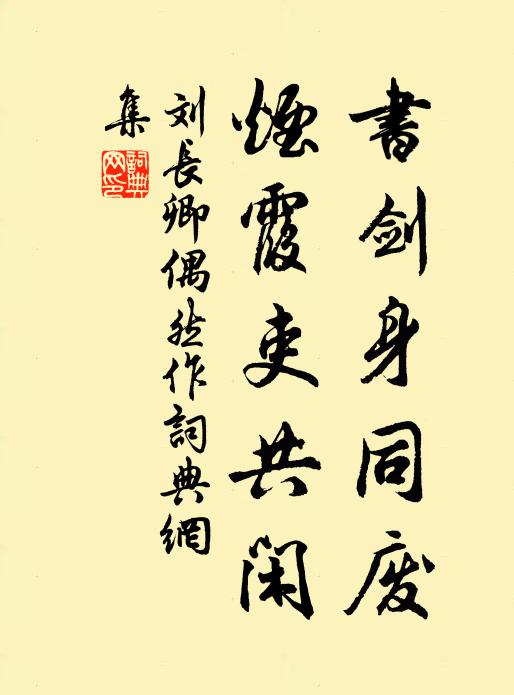 書劍身同废
煙霞吏共閑
刘長卿偶然作詞典網
集
詞典网印